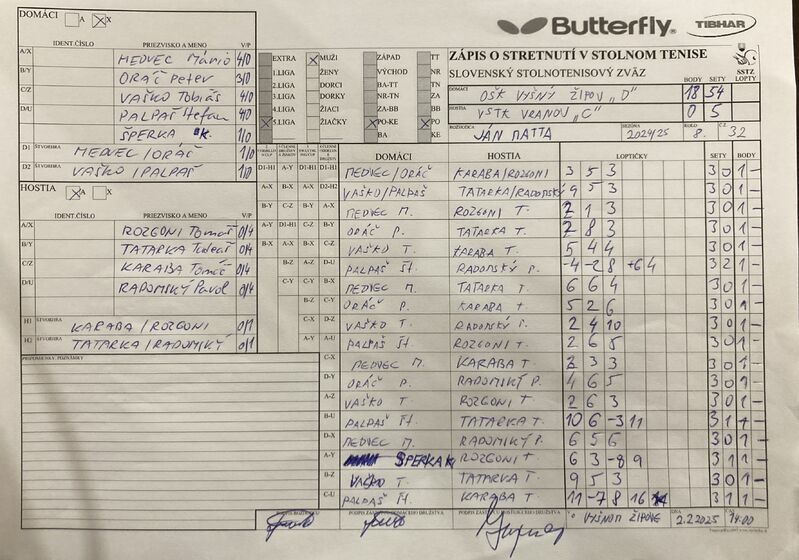 DOMÁCI A X
Butterfly TIBHAR
IDENT.ČÍSLO PRIEZVISKO A MENO V/P
A/X MEDVEC Mário 4/0
B/Y ORÁČ Peter 3/0
C/Z VAŠKO Tobiáš 4/0
D/U PALPAŠ Štefan 4/0
ŠPERKA K. 1/0
D1 ŠTVORHRA MEDVEC/ORÁČ 1/0
D2 ŠTVORHRA VAŠKO/PALPAŠ 1/0
EXTRA MUŽI ZÁPAD TT
1.LIGA ŽENY VÝCHOD NR
2.LIGA DORCI BA-TT TN
3.LIGA DORKY NR-TN ZA
4.LIGA ŽIACI ZA-BB BB
5.LIGA ŽIAČKY PO-KE PO
BA KE
ZÁPIS O STRETNUTÍ V STOLNOM TENISE
SLOVENSKÝ STOLNOTENISOVÝ ZVÄZ
SSTZ
BODY SETY LOPTY
DOMÁCI OŠK VYŠNÝ ŽIPOV „D" 18 54
HOSTIA VSTK VRANOV „C" 0 5
ROZHODCA JÁN MATTA SEZÓNA 2024/25 KOLO 8. Č.Z 32
HOSTIA A X
IDENT.ČÍSLO PRIEZVISKO A MENO V/P
A/X ROZGONI Tomáš 0/4
B/Y TATARKA Tadeáš 0/4
C/Z KARABA Tomáš 0/4
D/U RADOMSKÝ Pavol 0/4
H1 ŠTVORHRA KARABA/ROZGONI 0/1
H2 ŠTVORHRA TATARKA/RADOMSKÝ 0/1
PRIPOMIENKY, POZNÁMKY
DOMÁCI HOSTIA LOPTIČKY SETY BODY
MEDVEC/ORÁČ KARABA/ROZGONI 3 5 3 3 0 1 -
VAŠKO/PALPAŠ TATARKA/RADOMSKÝ 9 5 3 3 0 1 -
MEDVEC M. ROZGONI T. 2 1 3 3 0 1 -
ORÁČ P. TATARKA T. 2 8 3 3 0 1 -
VAŠKO T. KARABA T. 5 4 4 3 0 1 -
PALPAŠ Št. RADOMSKÝ P. -4 -2 8 +6 4 3 2 1 -
MEDVEC M. TATARKA T. 6 6 4 3 0 1 -
ORÁČ P. KARABA T. 5 2 6 3 0 1 -
VAŠKO T. RADOMSKÝ P. 2 4 10 3 0 1 -
PALPAŠ Št. ROZGONI T. 2 6 5 3 0 1 -
C-X MEDVEC M. KARABA T. 2 3 3 3 0 1 -
D-Y ORÁČ P. RADOMSKÝ P. 4 6 5 3 0 1 -
A-Z VAŠKO T. ROZGONI T. 2 6 3 3 0 1 -
B-U PALPAŠ Št. TATARKA T. 10 6 -3 11 3 1 1 -
D-X MEDVEC M. RADOMSKÝ P. 6 5 6 3 0 1 -
A-Y ŠPERKA K. ROZGONI T. 6 3 -8 9 3 1 1 -
B-Z VAŠKO T. TATARKA T. 9 5 3 3 0 1 -
C-U PALPAŠ Št. KARABA T. 11 -7 8 16 3 1 1 -
VYŠNOM ŽIPOVE DŇA 2.2.2025 14:00